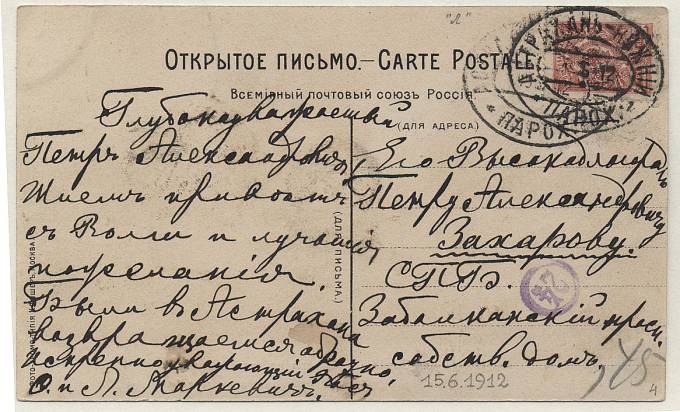 "Л"
ОТКРЫТОЕ ПИСЬМО.—CARTE POSTALE
ВСЕМІРНЫЙ ПОЧТОВЫЙ СОЮЗЪ РОССІЯ.
АСТРАХАНЬ НИЖНІЙ
5 12
ПАРОХ.
ПАРОХ.
Глубокоуважаемый
Петръ Александровичъ
Шлемъ привѣтъ
съ Волги и лучшія
пожеланія.
Были въ Астрахани
возвращаемся обратно,
искренно уважающіе Васъ
О. и Л. Маркевичъ.
(ДЛЯ АДРЕСА)
Его Высокоблагородію
Петру Александровичу
Захарову.
СПБ.
Забалканскій просп.
собств. домъ.
(ДЛЯ ПИСЬМА)
МОСКВА
24
15.6.1912
45
4